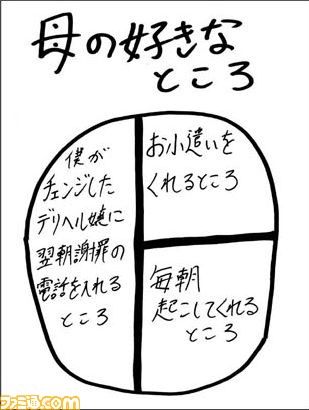 母の好きな
ところ
僕が
チェンジした
デリヘル嬢に
翌朝謝罪の
電話を入れる
ところ
お小遣いを
くれるところ
毎朝
起こしてくれる
ところ
ファミ通.com